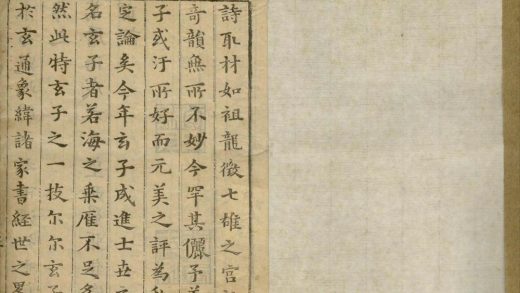 詩取材如祖龍徵七雄之宮
奇韻無所不妙今罕其儷予
子或汙所好而元美之評為
定論矣今年玄子成進士
名玄子者若海之乗雁不足
然此特玄子之一技尔尔玄子
於玄通象緯諸家書經世之